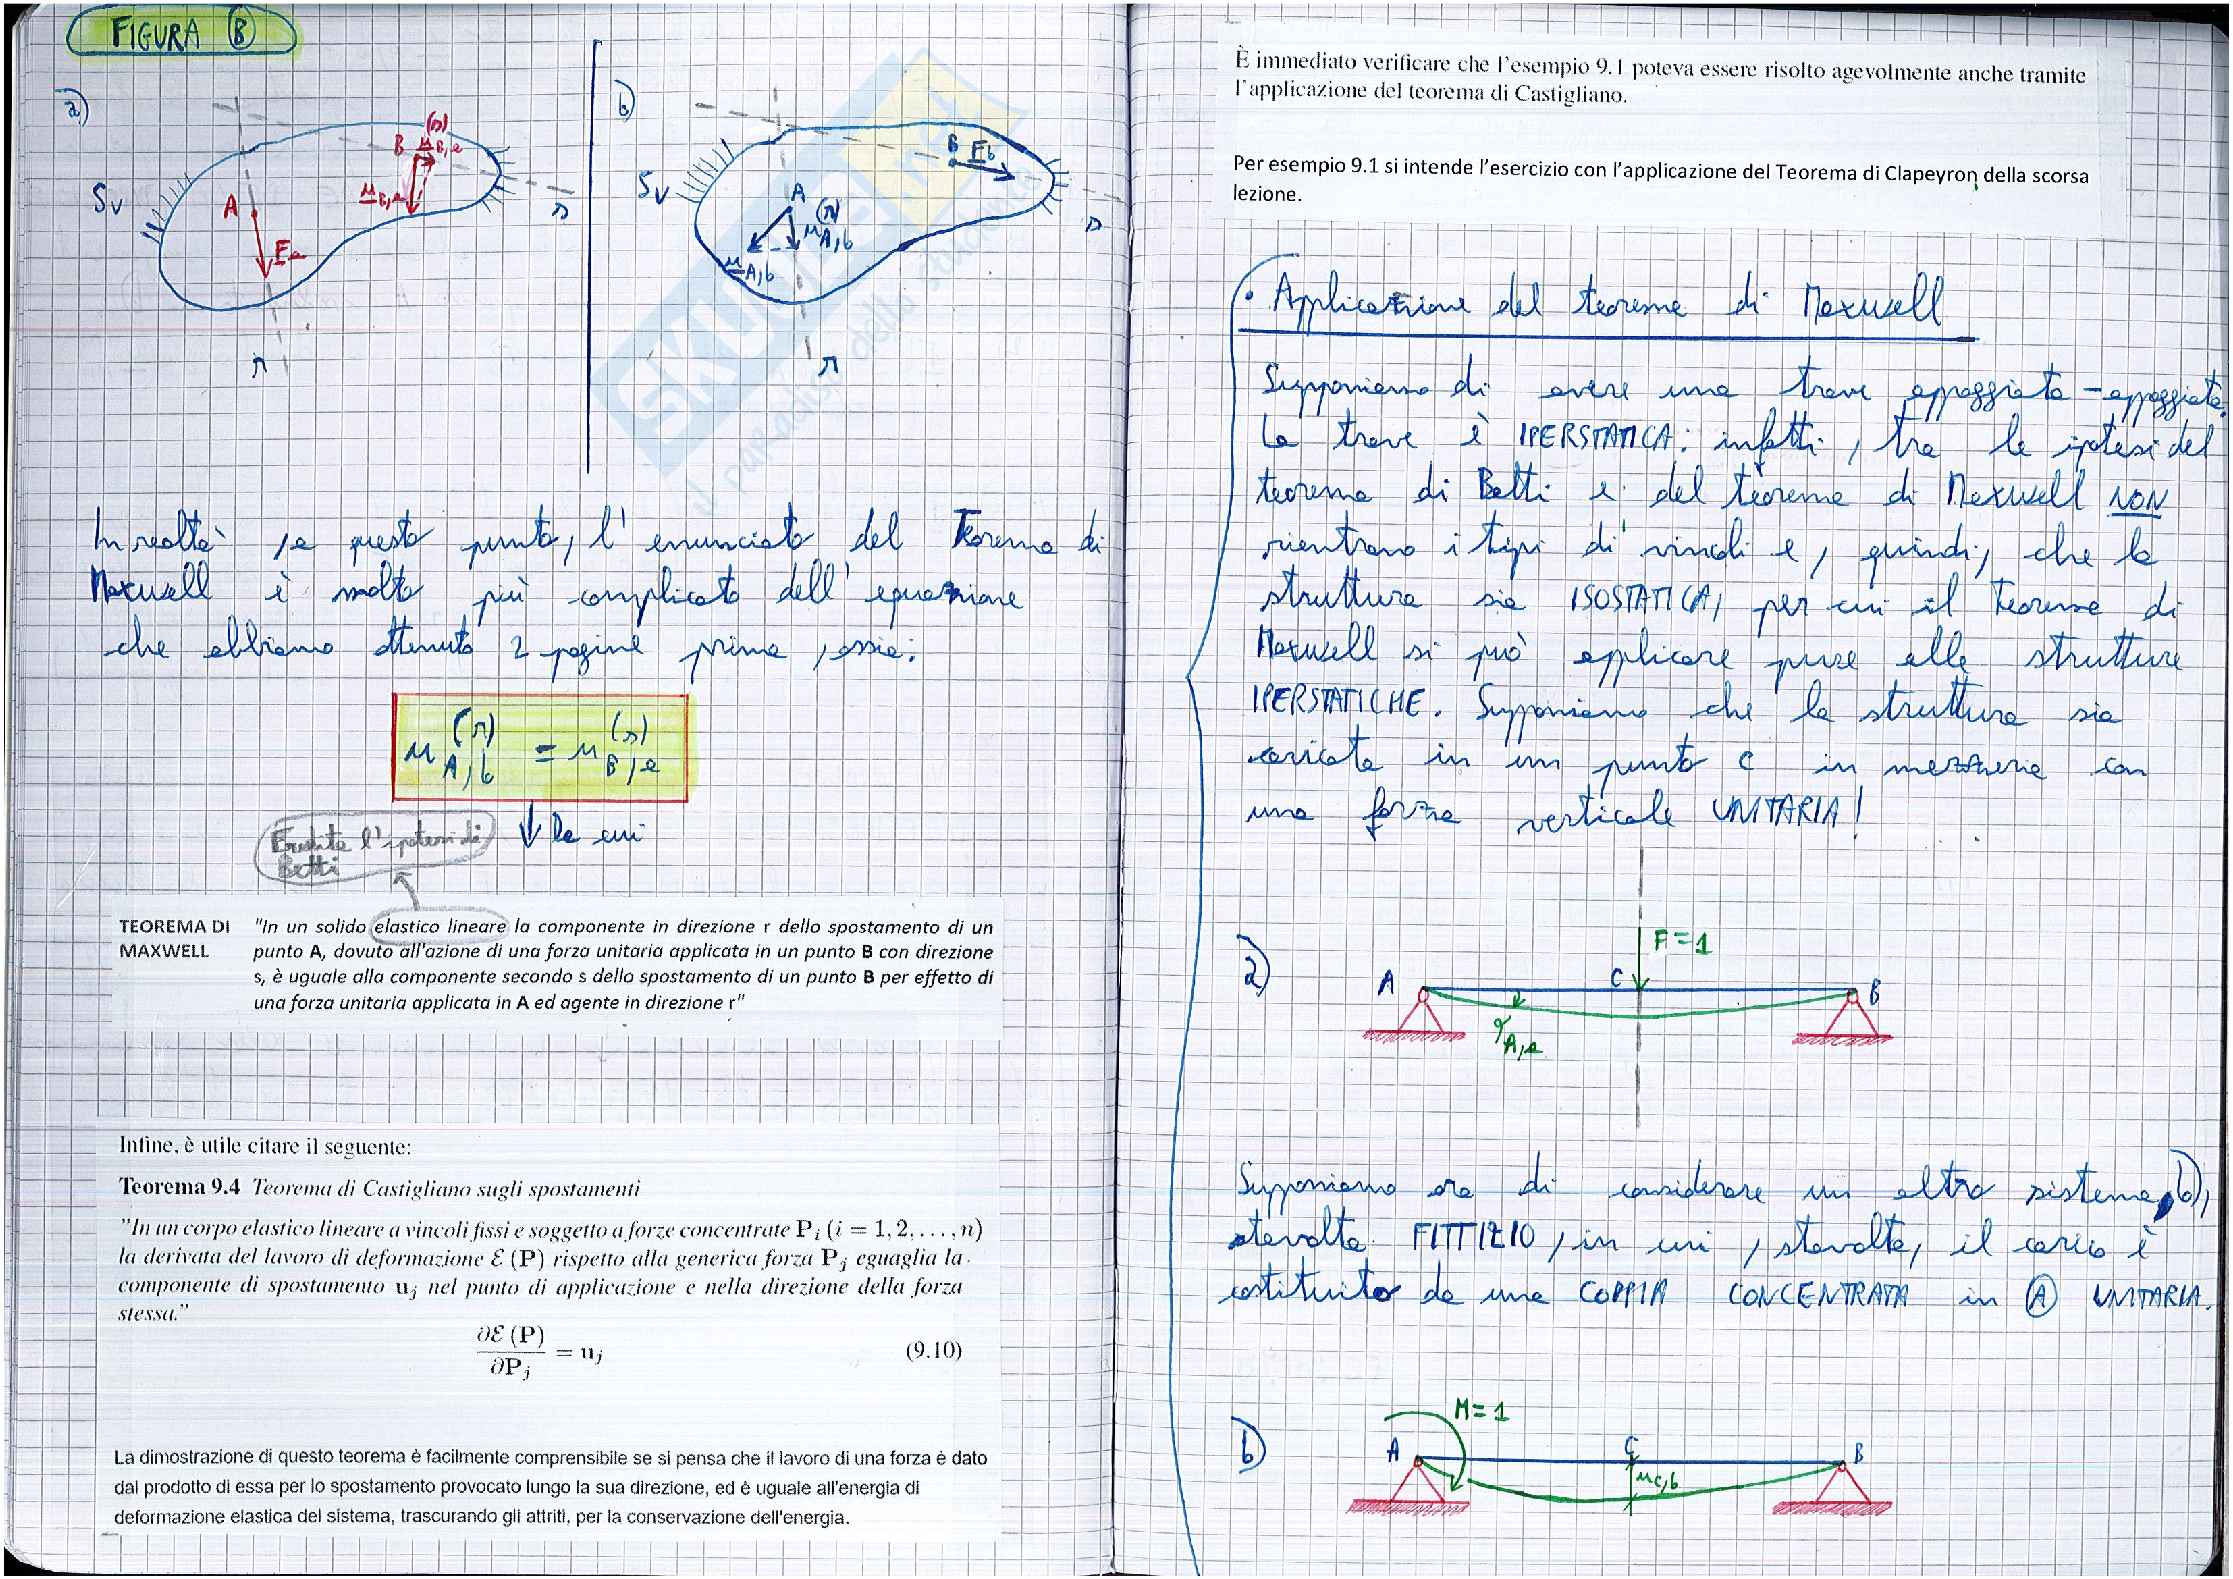 FIGURA B
a)
A
Fa
B
u B,a (s)
u B,a
Sv
s
r
b)
B
Fb
A
u A,b (r)
u A,b
Sv
s
r
SKUOLA.net
il paradiso dello studente
In realtà, a questo punto, l'enunciato del Teorema di
Maxwell è molto più complicato dell'equazione
che abbiamo ottenuto 2 pagine prima, ossia:
u A,b (r) = u B,a (s)
Da cui
Eredita l'ipotesi di
Betti
TEOREMA DI MAXWELL
"In un solido elastico lineare la componente in direzione r dello spostamento di un
punto A, dovuto all'azione di una forza unitaria applicata in un punto B con direzione
s, è uguale alla componente secondo s dello spostamento di un punto B per effetto di
una forza unitaria applicata in A ed agente in direzione r"
Infine, è utile citare il seguente:
Teorema 9.4 Teorema di Castigliano sugli spostamenti
"In un corpo elastico lineare a vincoli fissi e soggetto a forze concentrate Pi (i = 1, 2, . . . , n)
la derivata del lavoro di deformazione ℰ (P) rispetto alla generica forza Pj eguaglia la
componente di spostamento uj nel punto di applicazione e nella direzione della forza
stessa."
∂ℰ (P) / ∂Pj = uj (9.10)
La dimostrazione di questo teorema è facilmente comprensibile se si pensa che il lavoro di una forza è dato
dal prodotto di essa per lo spostamento provocato lungo la sua direzione, ed é uguale all'energia di
deformazione elastica del sistema, trascurando gli attriti, per la conservazione dell'energia.
È immediato verificare che l'esempio 9.1 poteva essere risolto agevolmente anche tramite
l'applicazione del teorema di Castigliano.
Per esempio 9.1 si intende l'esercizio con l'applicazione del Teorema di Clapeyron della scorsa
lezione.
• Applicazione del teorema di Maxwell
Supponiamo di avere una trave appoggiata-appoggiata.
La trave è IPERSTATICA: infatti, tra le ipotesi del
teorema di Betti e del teorema di Maxwell NON
rientrano i tipi di vincoli e, quindi, che la
struttura sia ISOSTATICA, per cui il teorema di
Maxwell si può applicare pure alle strutture
IPERSTATICHE. Supponiamo che la struttura sia
caricata in un punto C in mezzeria con
una forza verticale UNITARIA!
a)
A
C
F=1
B
φA,a
Supponiamo ora di considerare un altro sistema, b),
stavolta FITTIZIO, in cui, stavolta, il carico è
costituito da una COPPIA CONCENTRATA in A UNITARIA.
b)
A
M=1
C
uc,b
B